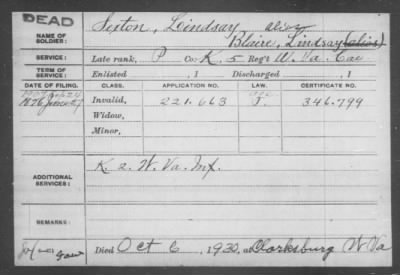 DEAD
NAME OF SOLDIER: Sexton, Lindsay alias
Blaire, Lindsay (alias)
SERVICE: Late rank, P Co. K, 5 Reg't W. Va. Cav
TERM OF SERVICE: Enlisted , 1 Discharged , 1
DATE OF FILING. CLASS. APPLICATION NO. LAW. CERTIFICATE NO.
1876 June 27 Invalid, 221.663 J. 346.799
Widow,
Minor,
ADDITIONAL SERVICES: K 2 W. Va. Inf.
REMARKS:
Died Oct 6, 1930, at Clarksburg W Va